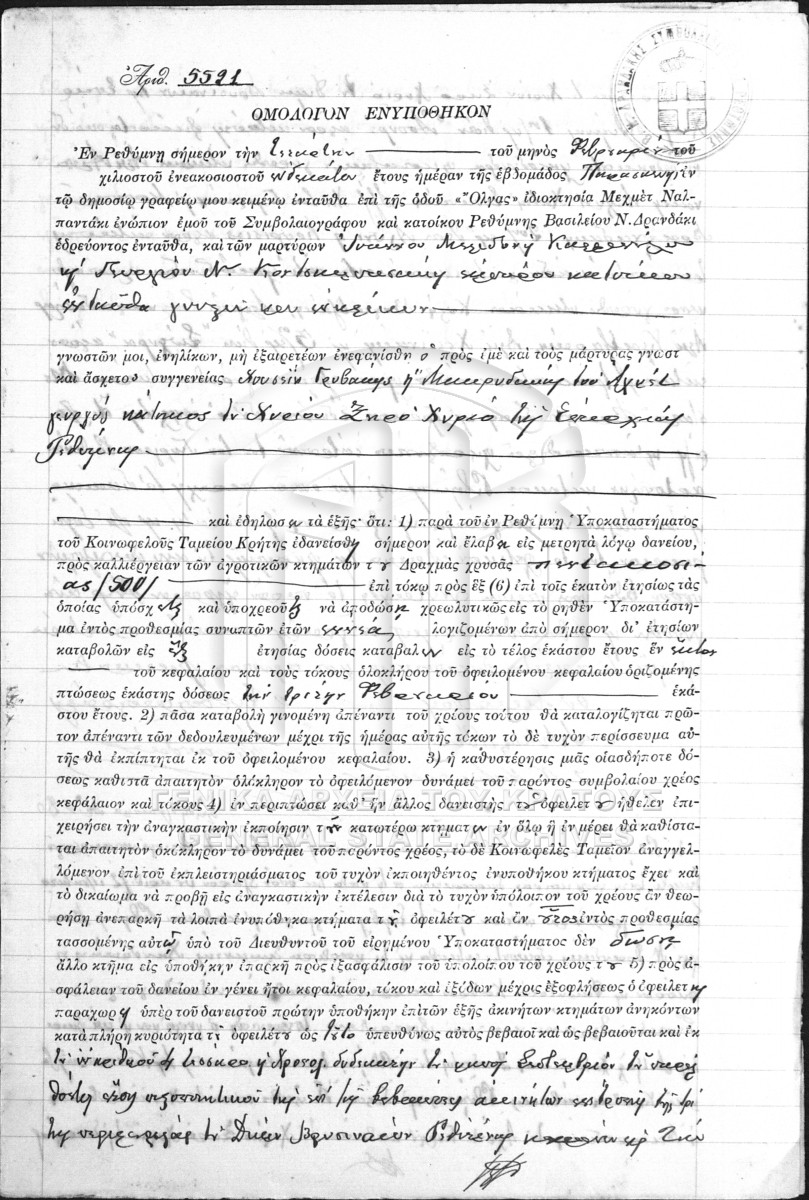 Ἀριθ. 5521
ΟΜΟΛΟΓΟΝ ΕΝΥΠΟΘΗΚΟΝ
Ἐν Ρεθύμνῃ σήμερον τὴν τετάρτην τοῦ μηνὸς Φεβρουαρίου τοῦ
χιλιοστοῦ ἐνεακοσιοστοῦ ἑνδεκάτου ἔτους ἡμέραν τῆς ἑβδομάδος Παρασκευὴν ἐν
τῷ δημοσίῳ γραφείῳ μου κειμένῳ ἐνταῦθα ἐπὶ τῆς ὁδοῦ «Ὄλγας» ἰδιοκτησία Μεχμὲτ Ναλ-
παντάκι ἐνώπιον ἐμοῦ τοῦ Συμβολαιογράφου καὶ κατοίκου Ρεθύμνης Βασιλείου Ν. Δρανδάκι
ἑδρεύοντος ἐνταῦθα, καὶ τῶν μαρτύρων Ἰωάννου
Γεωργίου Ν. κατοίκων
ἐνταῦθα
γνωστῶν μοι, ἐνηλίκων, μὴ ἐξαιρετέων ἐνεφανίσθη ὁ πρὸς ἐμὲ καὶ τοὺς μάρτυρας γνωστ
καὶ ἄσχετος συγγενείας Χουσεῒν Γρυβάκης ἢ Μακρυδάκης τοῦ Ἀχμὲτ
γεωργὸς κάτοικος τοῦ Χωρίου Ξηρὸ Χωριὸ τῆς Ἐπαρχίας
Ρεθύμνης
καὶ ἐδήλωσεν τὰ ἑξῆς· ὅτι: 1) παρὰ τοῦ ἐν Ρεθύμνῃ Ὑποκαταστήματος
τοῦ Κοινωφελοῦς Ταμείου Κρήτης ἐδανείσθη σήμερον καὶ ἔλαβεν εἰς μετρητὰ λόγῳ δανείου,
πρὸς καλλιέργειαν τῶν ἀγροτικῶν κτημάτων του Δραχμὰς χρυσᾶς πεντακοσί-
ας /500/ ἐπὶ τόκῳ πρὸς ἓξ (6) ἐπὶ τοῖς ἑκατὸν ἐτησίως τὰς
ὁποίας ὑπόσχεται καὶ ὑποχρεοῦται νὰ ἀποδώσῃ χρεωλυτικῶς εἰς τὸ ρηθὲν Ὑποκατάστη-
μα ἐντὸς προθεσμίας συναπτῶν ἐτῶν ἐννέα, λογιζομένων ἀπὸ σήμερον δι' ἐτησίων
καταβολῶν εἰς ἓξ ἐτησίας δόσεις καταβαλων εἰς τὸ τέλος ἑκάστου ἔτους ἓν ἕκτον
τοῦ κεφαλαίου καὶ τοὺς τόκους ὁλοκλήρου τοῦ ὀφειλομένου κεφαλαίου ὁριζομένης
πτώσεως ἑκάστης δόσεως τὴν τρίτην Φεβρουαρίου ἑκά-
στου ἔτους. 2) πᾶσα καταβολὴ γινομένη ἀπέναντι τοῦ χρέους τούτου θὰ καταλογίζηται πρῶ-
τον ἀπέναντι τῶν δεδουλευμένων μέχρι τῆς ἡμέρας αὐτῆς τόκων τὸ δὲ τυχὸν περίσσευμα αὐ-
τῆς θὰ ἐκπίπτηται ἐκ τοῦ ὀφειλομένου κεφαλαίου. 3) ἡ καθυστέρησις μιᾶς οἱασδήποτε δό-
σεως καθιστᾶ ἀπαιτητὸν ὁλόκληρον τὸ ὀφειλόμενον δυνάμει τοῦ παρόντος συμβολαίου χρέος
κεφάλαιον καὶ τόκους 4) ἐν περιπτώσει καθ' ἣν ἄλλος δανειστὴς τοῦ ὀφειλέτου ἤθελεν ἐπι-
χειρήσει τὴν ἀναγκαστικὴν ἐκποίησιν τῶν κατωτέρω κτημάτων ἐν ὅλῳ ἢ ἐν μέρει θὰ καθίστα-
ται ἀπαιτητὸν ὁλόκληρον τὸ δυνάμει τοῦ παρόντος χρέος, τὸ δὲ Κοινωφελὲς Ταμεῖον ἀναγγελ-
λόμενον ἐπὶ τοῦ ἐκπλειστηριάσματος τοῦ τυχὸν ἐκποιηθέντος ἐνυποθήκου κτήματος ἔχει καὶ
τὸ δικαίωμα νὰ προβῇ εἰς ἀναγκαστικὴν ἐκτέλεσιν διὰ τὸ τυχὸν ὑπόλοιπον τοῦ χρέους ἂν θεω-
ρήσῃ ἀνεπαρκῆ τὰ λοιπὰ ἐνυπόθηκα κτήματα τοῦ ὀφειλέτου καὶ ἂν οὗτος ἐντὸς προθεσμίας
τασσομένης αὐτῷ ὑπὸ τοῦ Διευθυντοῦ τοῦ εἰρημένου Ὑποκαταστήματος δὲν δώσῃ
ἄλλο κτῆμα εἰς ὑποθήκην ἐπαρκῆ πρὸς ἐξασφάλισιν τοῦ ὑπολοίπου τοῦ χρέους του 5) πρὸς ἀ-
σφάλειαν τοῦ δανείου ἐν γένει ἤτοι κεφαλαίου, τόκου καὶ ἐξόδων μέχρις ἐξοφλήσεως ὁ ὀφειλέτης
παραχωρεῖ ὑπὲρ τοῦ δανειστοῦ πρώτην ὑποθήκην ἐπὶ τῶν ἑξῆς ἀκινήτων κτημάτων ἀνηκόντων
κατὰ πλήρη κυριότητα τῷ ὀφειλέτου ὡς τοῦτο ὑπευθύνως αὐτὸς βεβαιοῖ καὶ ὡς βεβαιοῦται καὶ ἐκ
τοῦ
τῆς ἐπὶ τῆς ἀκινήτων ἐπιτροπῆς τῆς τρί-
της περιφερείας τοῦ Δήμου Ρεθύμνης
ΓΕΝΙΚΑ ΑΡΧΕΙΑ ΤΟΥ ΚΡΑΤΟΥΣ
GENERAL STATE ARCHIVES